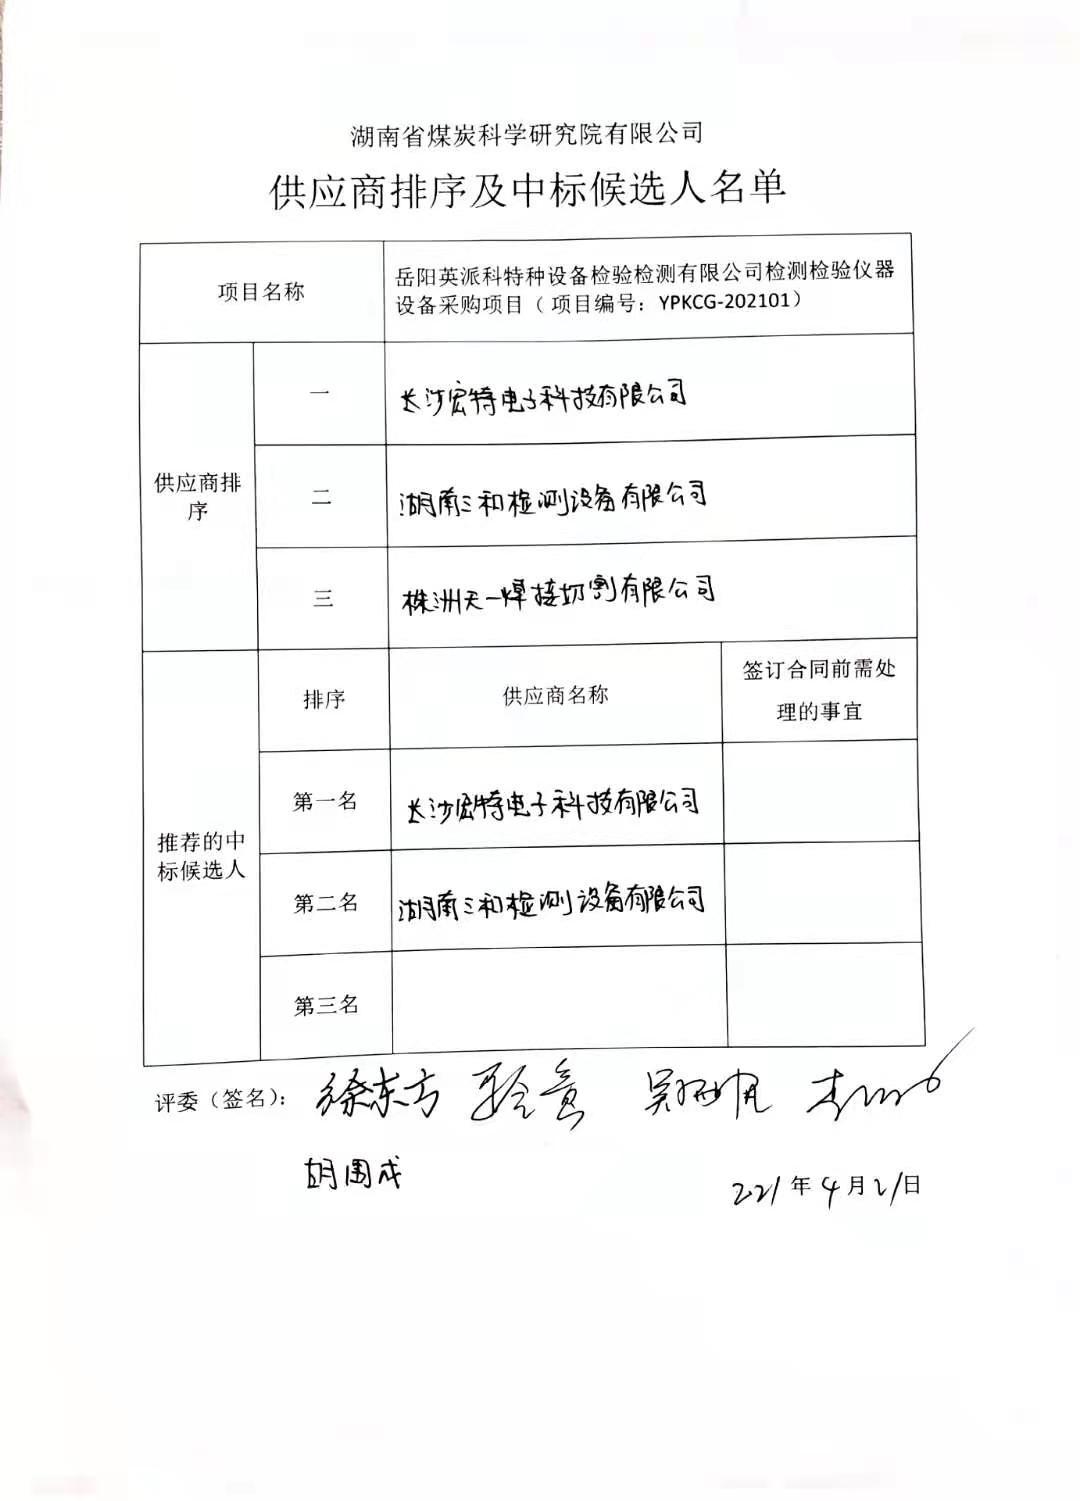 湖南省煤炭科学研究院有限公司
供应商排序及中标候选人名单
项目名称
岳阳英派科特种设备检验检测有限公司检测检验仪器
设备采购项目（项目编号：YPKCG-202101）
供应商排
序
一
长沙宏特电子科技有限公司
二
湖南三和检测设备有限公司
三
株洲天一焊接切割有限公司
推荐的中
标候选人
排序
供应商名称
签订合同前需处
理的事宜
第一名
长沙宏特电子科技有限公司
第二名
湖南三和检测设备有限公司
第三名
评委（签名）：徐东方
胡国成
2021年4月21日